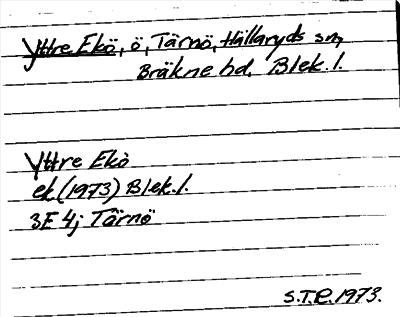 Yttre Ekö, ö, Tärnö, Hällaryds sn,
Bräkne hd, Blek. l.
Yttre Ekö
ek (1973) Blek. l.
3E 4j Tärnö
S.T.E. 1973.